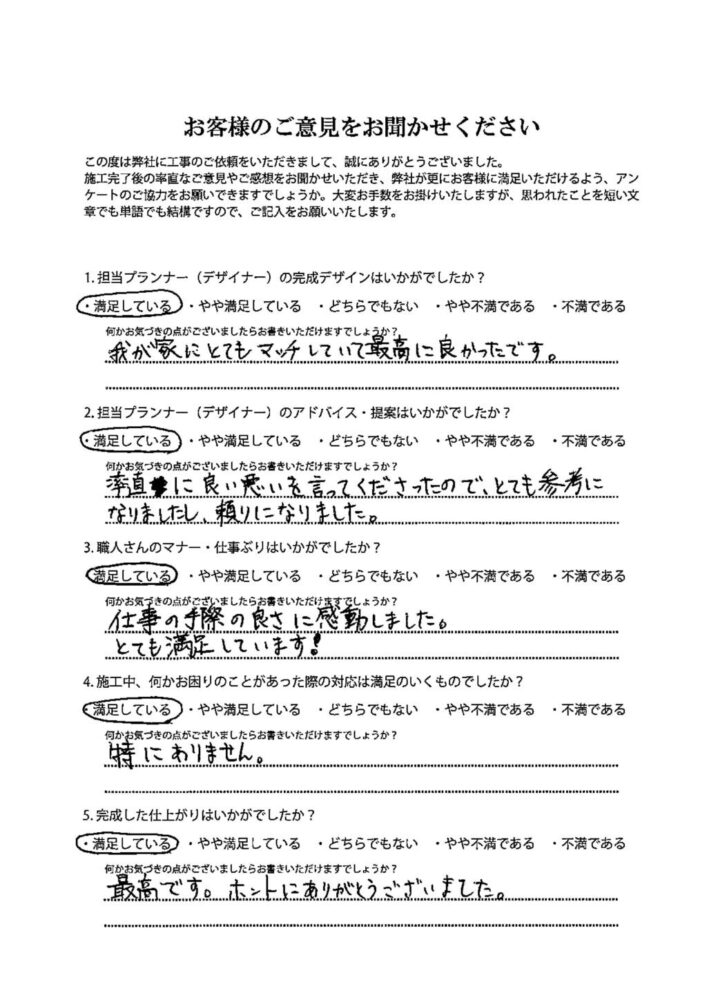 お客様のご意見をお聞かせください
この度は弊社に工事のご依頼をいただきまして、誠にありがとうございました。
施工完了後の率直なご意見やご感想をお聞かせいただき、弊社が更にお客様に満足いただけるよう、アン
ケートのご協力をお願いできますでしょうか。大変お手数をお掛けいたしますが、思われたことを短い文
章でも単語でも結構ですので、ご記入をお願いいたします。
1. 担当プランナー（デザイナー）の完成デザインはいかがでしたか？
・満足している ・やや満足している ・どちらでもない ・やや不満である ・不満である
何かお気づきの点がございましたらお書きいただけますでしょうか？
我が家にとてもマッチしていて最高に良かったです。
2. 担当プランナー（デザイナー）のアドバイス・提案はいかがでしたか？
・満足している ・やや満足している ・どちらでもない ・やや不満である ・不満である
何かお気づきの点がございましたらお書きいただけますでしょうか？
率直に良い悪いを言ってくださったので、とても参考に
なりましたし、頼りになりました。
3. 職人さんのマナー・仕事ぶりはいかがでしたか？
・満足している ・やや満足している ・どちらでもない ・やや不満である ・不満である
何かお気づきの点がございましたらお書きいただけますでしょうか？
仕事の手際の良さに感動しました。
とても満足しています！
4. 施工中、何かお困りのことがあった際の対応は満足のいくものでしたか？
・満足している ・やや満足している ・どちらでもない ・やや不満である ・不満である
何かお気づきの点がございましたらお書きいただけますでしょうか？
特にありません。
5. 完成した仕上がりはいかがでしたか？
・満足している ・やや満足している ・どちらでもない ・やや不満である ・不満である
何かお気づきの点がございましたらお書きいただけますでしょうか？
最高です。ホントにありがとうございました。